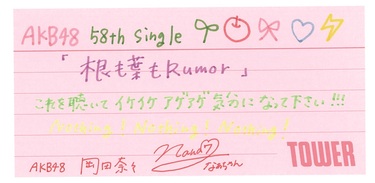 AKB48 58th Single
「根も葉もRumor」
これを聴いてイケイケアゲアゲ気分になって下さい!!!
Nothing! Nothing! Nothing!
AKB48 岡田奈々 なぁちゃん TOWER